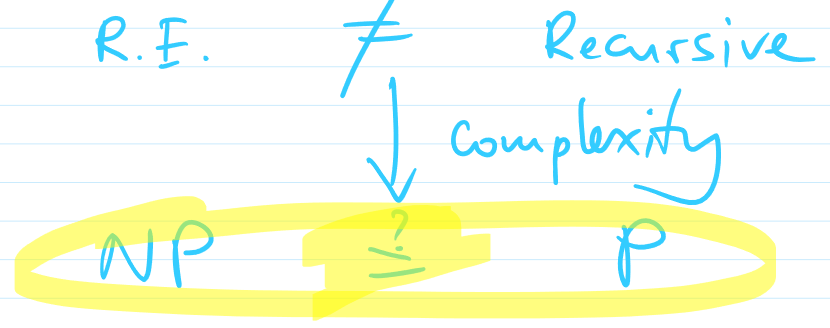 R.E. ≠ Recursive
↓ Complexity
NP ≟ P